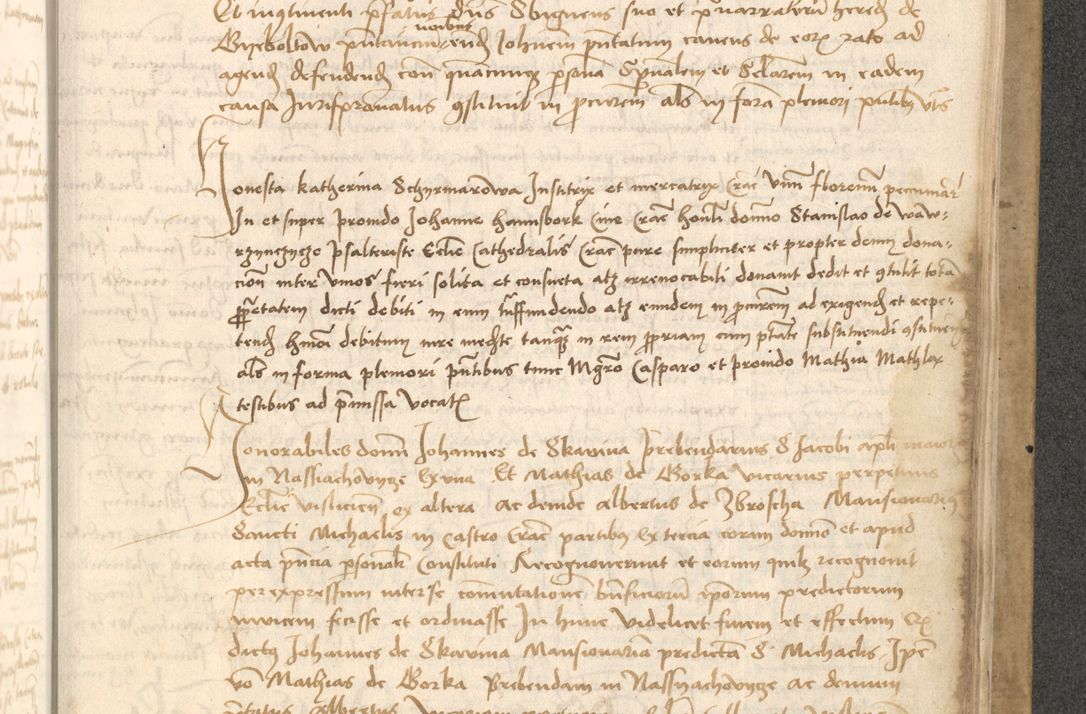 Et in continenti pfatus dns Sbigneus suo et pnarratoru hered de
noibus
Byeboltow pntavit Johnem pntatum canens de eorz rato ad
agend defendend con quacunqz psona Spualem et Seclarem in eadem
causa Jurispronatus constituit in pcurem als in forma pleniori pntibus
Honesta katherina Schyrmarowa Institrix et mercatrix Crac Unu florenu pecuniar
In et super provido Johanne hannsbork Cive Crac honli domino Stanislao de waw-
rzynczycze psalteriste Ecclie Cathedralis Crac pure simpliciter et propter deum dona-
cion inter vivos fieri solita et consueta atqz irrevocabili donavit dedit et contulit tota
pprietatem dicti debiti in eum transfundendo atqz eundem in pcurem ad exigend et repe-
tend hmoi debitum iure mediante tanquam in rem propriam cum ptate substituendi constituen
als in forma pleniori pntibus tunc Mgro Casparo et provido Mathia Mathlax
testibus ad pmissa vocatz
Honorabiles domi Johannes de Skawina Prebendarius S Jacobi apli maior
in Nassiachowycze ex una Et Mathias de Gorka vicarius perpetuus
Eclie vislicien ex altera ac deinde albertus de Zbroscha Mansionarius
Sancti Michaelis in Castro Crac partibus ex tercia coram domino et apud
acta pncia psonalr Constituti Recognoverunt et eorum quilz recognovit
per expressum inter se commutatione bnficiorum ipsorum predictorum
invicem fecisse et ordinasse In hunc videlicet finem et effectum Qz
dictus Johannes de Skawina Mansionaria predicta S Michaelis Ipse
vo Mathias de Gorka Prebendam in Nassyachowycze ac demum
pntatus Albertus